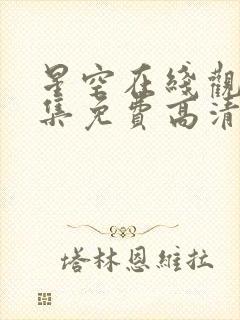 星空在綫觀
集免費高清
塔林恩維拉